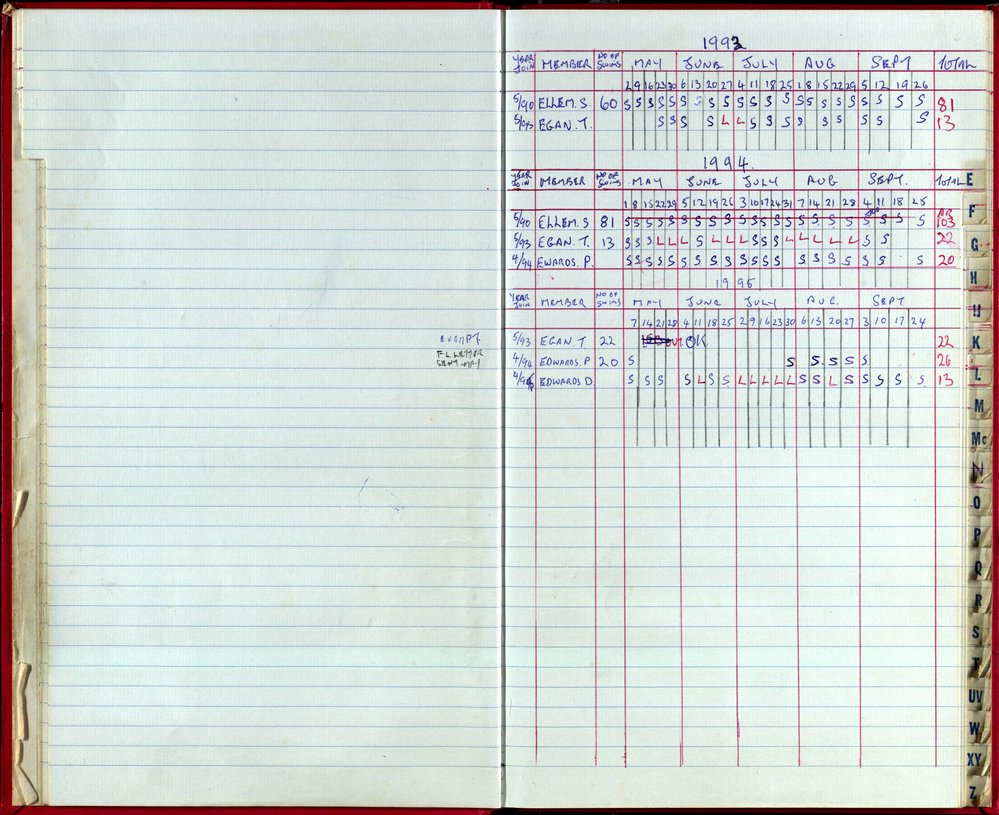 1993
YEAR JOIN MEMBER NO OF SWIMS MAY JUNE JULY AUG SEPT TOTAL
2 9 16 23 30 6 13 20 27 4 11 18 25 1 8 15 22 29 5 12 19 26
5/90 ELLEM. S 60 S S S S S S S S S S S S S S S S S S S S S S 81
5/93 EGAN. T. S S S S L L S S S S S S S S S 13
1994.
YEAR JOIN MEMBER NO OF SWIMS MAY JUNE JULY AUG SEPT. TOTAL
1 8 15 22 29 5 12 19 26 3 10 17 24 31 7 14 21 28 4 11 18 25
5/90 ELLEM. S 81 S S S S S S S S S S S S S S S S S S S S S S 103
5/93 EGAN. T. 13 S S S L L L S L L L S S S L L L L L S S 22
4/94 EWARDS. P. S S S S S S S S S S S S S S S S S S S S 20
1995
YEAR JOIN MEMBER NO OF SWIMS MAY JUNE JULY AUG. SEPT
7 14 21 28 4 11 18 25 2 9 16 23 30 6 13 20 27 3 10 17 24
5/93 EGAN. T 22 OUT OK 22
4/94 EDWARDS. P 20 S S S S S S S 26
EDWARDS D. S S S S L S S L L L L L S S L S S S S S 13
E
F
G
H
IJ
K
L
M
Mc
N
O
P
Q
R
S
T
UV
W
XY
Z